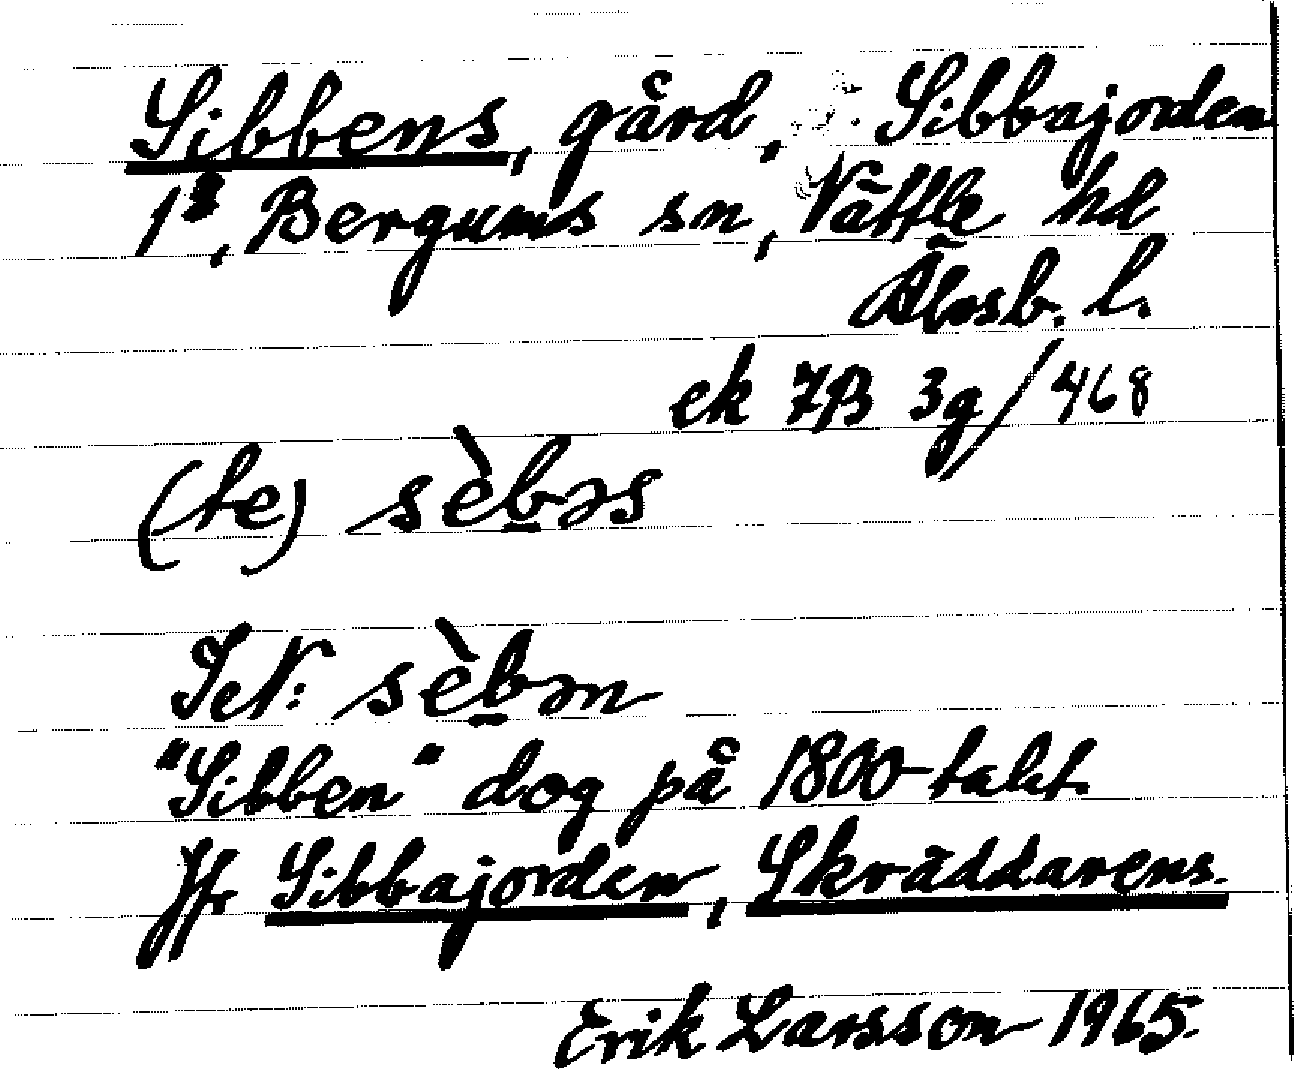 Sibbens, gård, Sibbajorden
1², Bergums sn, Vättle hd
Älvsb. l.
ek 7B 3g/468
(te) sèbəs
IeN: sèbən
"Sibben" dog på 1800-talet.
Jfr Sibbajorden, Skräddarens.
Erik Larsson 1965.